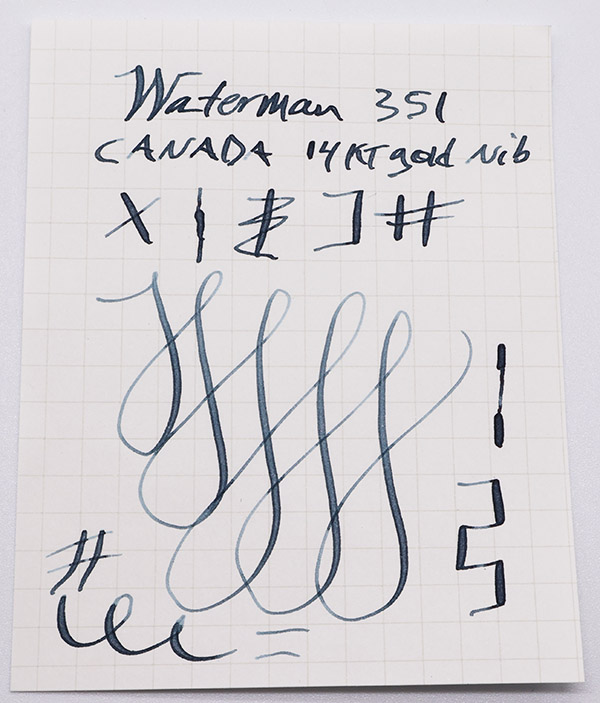 Waterman 351
CANADA 14KT gold Nib